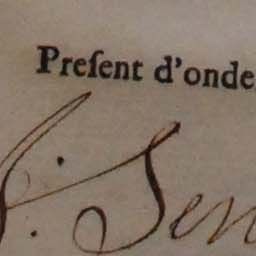 Preſent d'onde
Sen